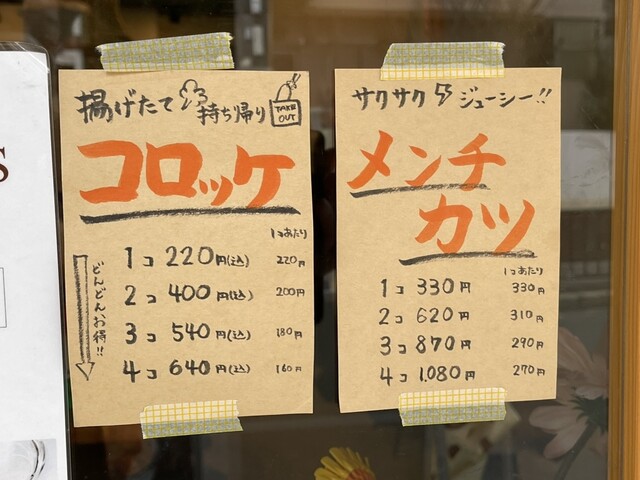 揚げたて 持ち帰り TAKE OUT
コロッケ
1コあたり
1コ 220円(込) 220円
2コ 400円(込) 200円
3コ 540円(込) 180円
4コ 640円(込) 160円
どんどんお得!!
サクサク ジューシー!!
メンチ
カツ
1コあたり
1コ 330円 330円
2コ 620円 310円
3コ 870円 290円
4コ 1,080円 270円
S